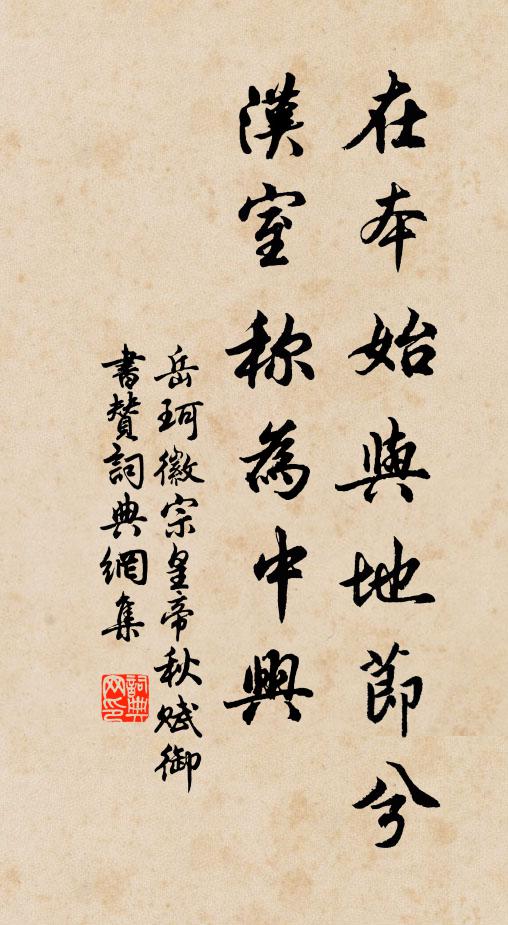 在本始與地節兮
漢室称為中興
岳珂徽宗皇帝秋賦御
書贊詞典網集
詞典網印